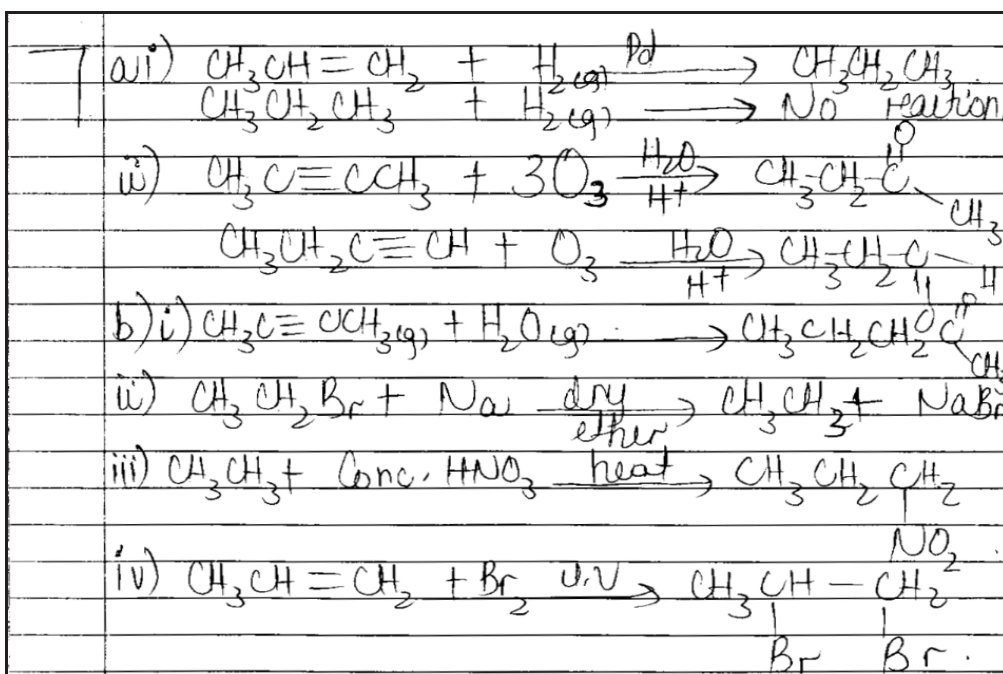 7 a i) CH₃CH=CH₂ + H₂(g) Pd → CH₃CH₂CH₃
CH₃CH₂CH₃ + H₂(g) → No reaction
ii) CH₃C≡CCH₃ + 3O₃ H₂O H⁺ → CH₃-CH₂-C=O CH₃
CH₃CH₂C≡CH + O₃ H₂O H⁺ → CH₃-CH₂-C-H O
b) i) CH₃C≡CCH₃(g) + H₂O(g) → CH₃CH₂CH₂C=O CH₃
ii) CH₃CH₂Br + Na dry ether → CH₃CH₃ + NaBr
iii) CH₃CH₃ + Conc. HNO₃ heat → CH₃CH₂CH₂
NO₂
iv) CH₃CH=CH₂ + Br₂ U.V → CH₃CH-CH₂
Br Br.